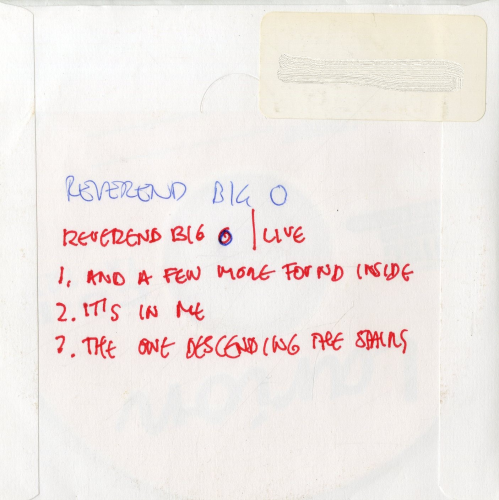 REVEREND BIG O
REVEREND BIG O | LIVE
1. AND A FEW MORE FOUND INSIDE
2. IT'S IN ME
3. THE ONE DESCENDING THE STAIRS